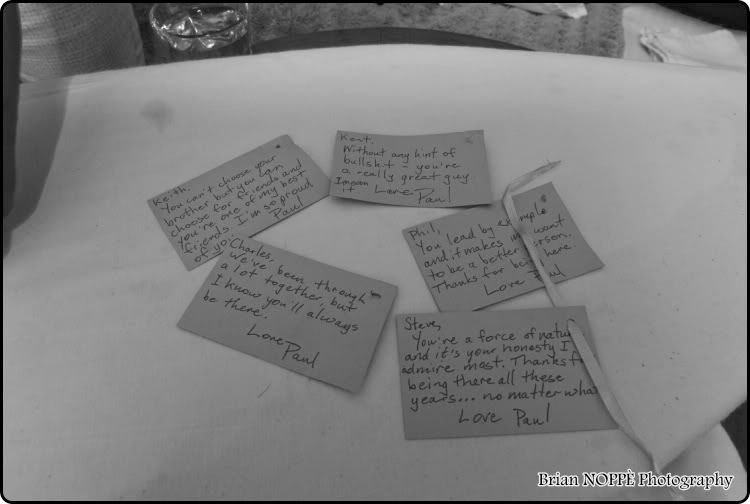 Keith,
You can't choose your
brother but you can
choose for friends and
you're one of my best
friends. I'm so proud
of yo
Paul
Kent.
Without any hint of
bullshit - you're
a really great guy
I mean it
Love Paul
Charles,
We've been through
a lot together, but
I know you'll always
be there.
Love
Paul
Phil,
You lead by example
and it makes me want
to be a better person.
Thanks for being here.
Love Paul
Steve,
You're a force of natu
and it's your honesty I
admire most. Thanks f
being there all these
years... no matter wha
Love Paul
Brian NOPPÈ Photography